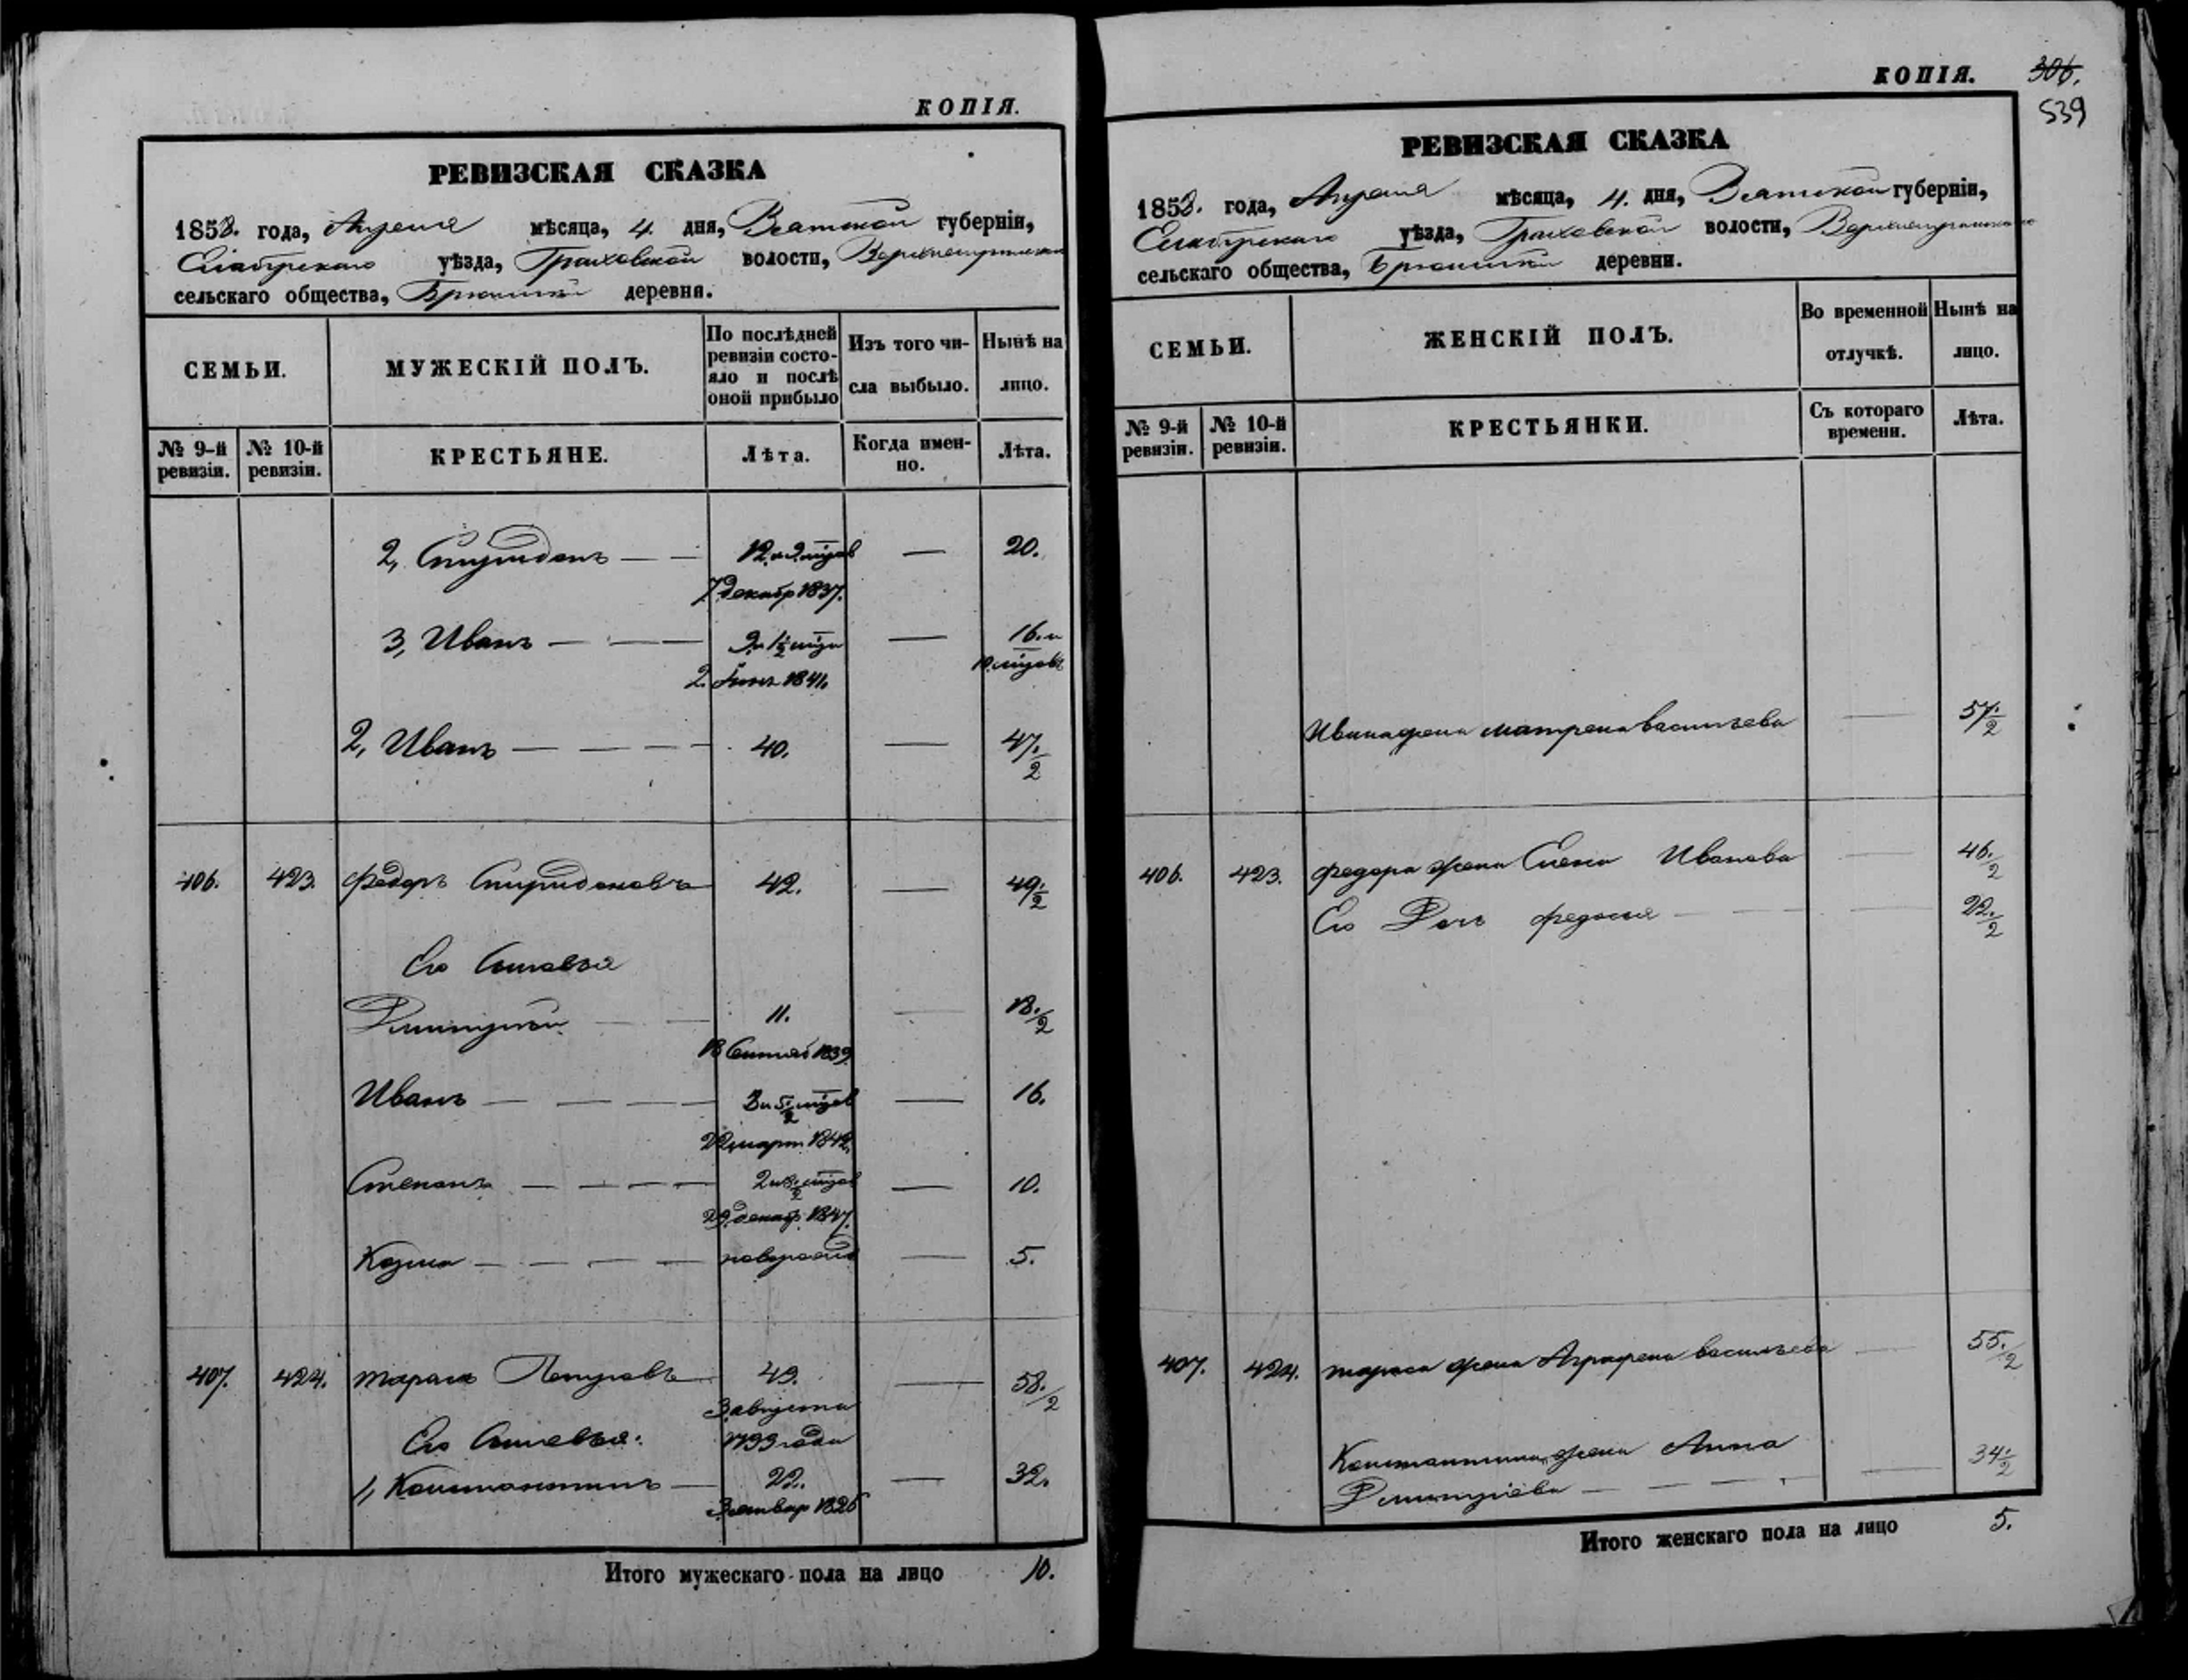 КОПІЯ.
РЕВИЗСКАЯ СКАЗКА
1858. года, Апреля мѣсяца, 4. дня, Вятской губерніи,
Елабужскаго уѣзда, Граховской волости,
сельскаго общества, деревня.
СЕМЬИ.
МУЖЕСКІЙ ПОЛЪ.
По послѣдней ревизіи состояло и послѣ оной прибыло
Изъ того числа выбыло.
Нынѣ на лицо.
№ 9-й ревизіи.
№ 10-й ревизіи.
КРЕСТЬЯНЕ.
Лѣта.
Когда именно.
Лѣта.
2, Спиридонъ — — — 20.
7 декабр 1837.
3, Иванъ — — — 16. и
1841.
2, Иванъ — — — — 40. — 47./2
406. 423. Федоръ Спиридоновъ 42. — 49./2
Его Сыновья
Дмитрій — — 11. — 18./2
18 Сентяб 1839.
Иванъ — — — — — 16.
22 март 1842.
Степанъ — — — — — 10.
29 декаб. 1847.
Козма — — — — — 5.
407. 424. Тарасъ Петровъ 49. — 58./2
3 августа
Его Сыновья: 1799 года
1, Константинъ — 22. — 32.
3 январ 1826
Итого мужескаго пола на лицо 10.
КОПІЯ. 306.
539
РЕВИЗСКАЯ СКАЗКА
1858. года, Апреля мѣсяца, 4. дня, Вятской губерніи,
Елабужскаго уѣзда, Граховской волости,
сельскаго общества, деревни.
СЕМЬИ.
ЖЕНСКІЙ ПОЛЪ.
Во временной отлучкѣ.
Нынѣ на лицо.
№ 9-й ревизіи.
№ 10-й ревизіи.
КРЕСТЬЯНКИ.
Съ котораго времени.
Лѣта.
Ивана жена матрена васильева — 57./2
406. 423. Федора жена Елена Иванова — 46./2
Его Дочь федосья — — — 22./2
407. 424. Тараса жена Аграфена васильева — 55./2
Константина жена Анна
Дмитріева — — — — — 34./2
Итого женскаго пола на лицо 5.